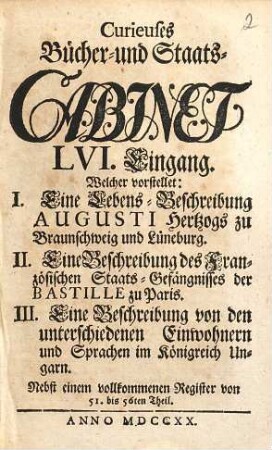 2
Curieuses
Bücher-und Staats-
CABINET
LVI. Eingang.
Welcher vorstellet:
I. Eine Lebens-Beschreibung
AUGUSTI Hertzogs zu
Braunschweig und Lüneburg.
II. Eine Beschreibung des Fran-
zösischen Staats-Gefängnisses der
BASTILLE zu Paris.
III. Eine Beschreibung von den
unterschiedenen Einwohnern
und Sprachen im Königreich Un-
garn.
Nebst einem vollkommenen Register von
51. bis 56ten Theil.
ANNO MDCCXX.